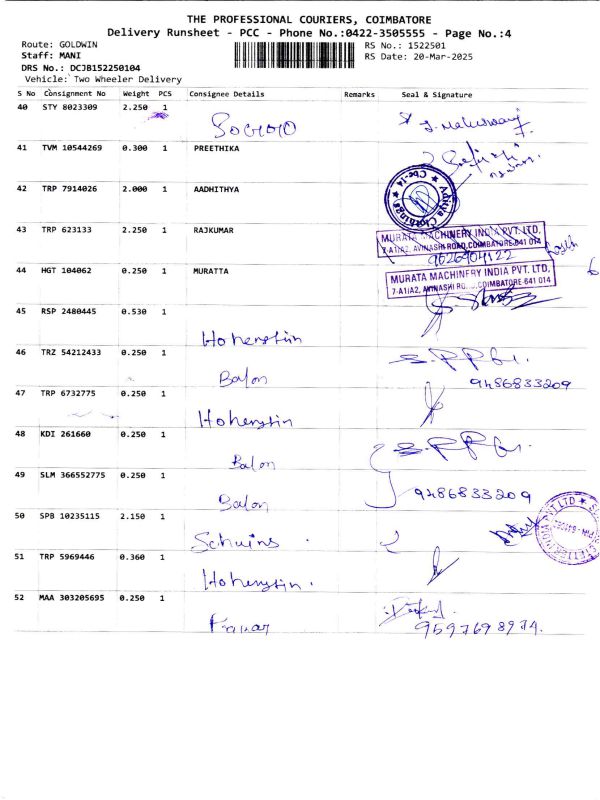 THE PROFESSIONAL COURIERS, COIMBATORE
Delivery Runsheet - PCC - Phone No.:0422-3505555 - Page No.:4
Route: GOLDWIN RS No.: 1522501
Staff: MANI RS Date: 20-Mar-2025
DRS No.: DCJB152250104
Vehicle: Two Wheeler Delivery
S No Consignment No Weight PCS Consignee Details Remarks Seal & Signature
40 STY 8023309 2.250 1
41 TVM 10544269 0.300 1 PREETHIKA
42 TRP 7914026 2.000 1 AADHITHYA
Cbe-14
43 TRP 623133 2.250 1 RAJKUMAR
MURATA MACHINERY INDIA PVT. LTD.
7-A1/A2, AVINASHI ROAD, COIMBATORE-641 014
44 HGT 104062 0.250 1 MURATTA
MURATA MACHINERY INDIA PVT. LTD.
7-A1/A2, AVINASHI RO COIMBATORE-641 014
45 RSP 2480445 0.530 1
Hohenstin
46 TRZ 54212433 0.250 1
Balon 9486833209
47 TRP 6732775 0.250 1
Hohenstin
48 KDI 261660 0.250 1
Balon
49 SLM 366552775 0.250 1
Balon 9486833209
50 SPB 10235115 2.150 1
51 TRP 5969446 0.360 1
Hohenstin
52 MAA 303205695 0.250 1
9597698974.